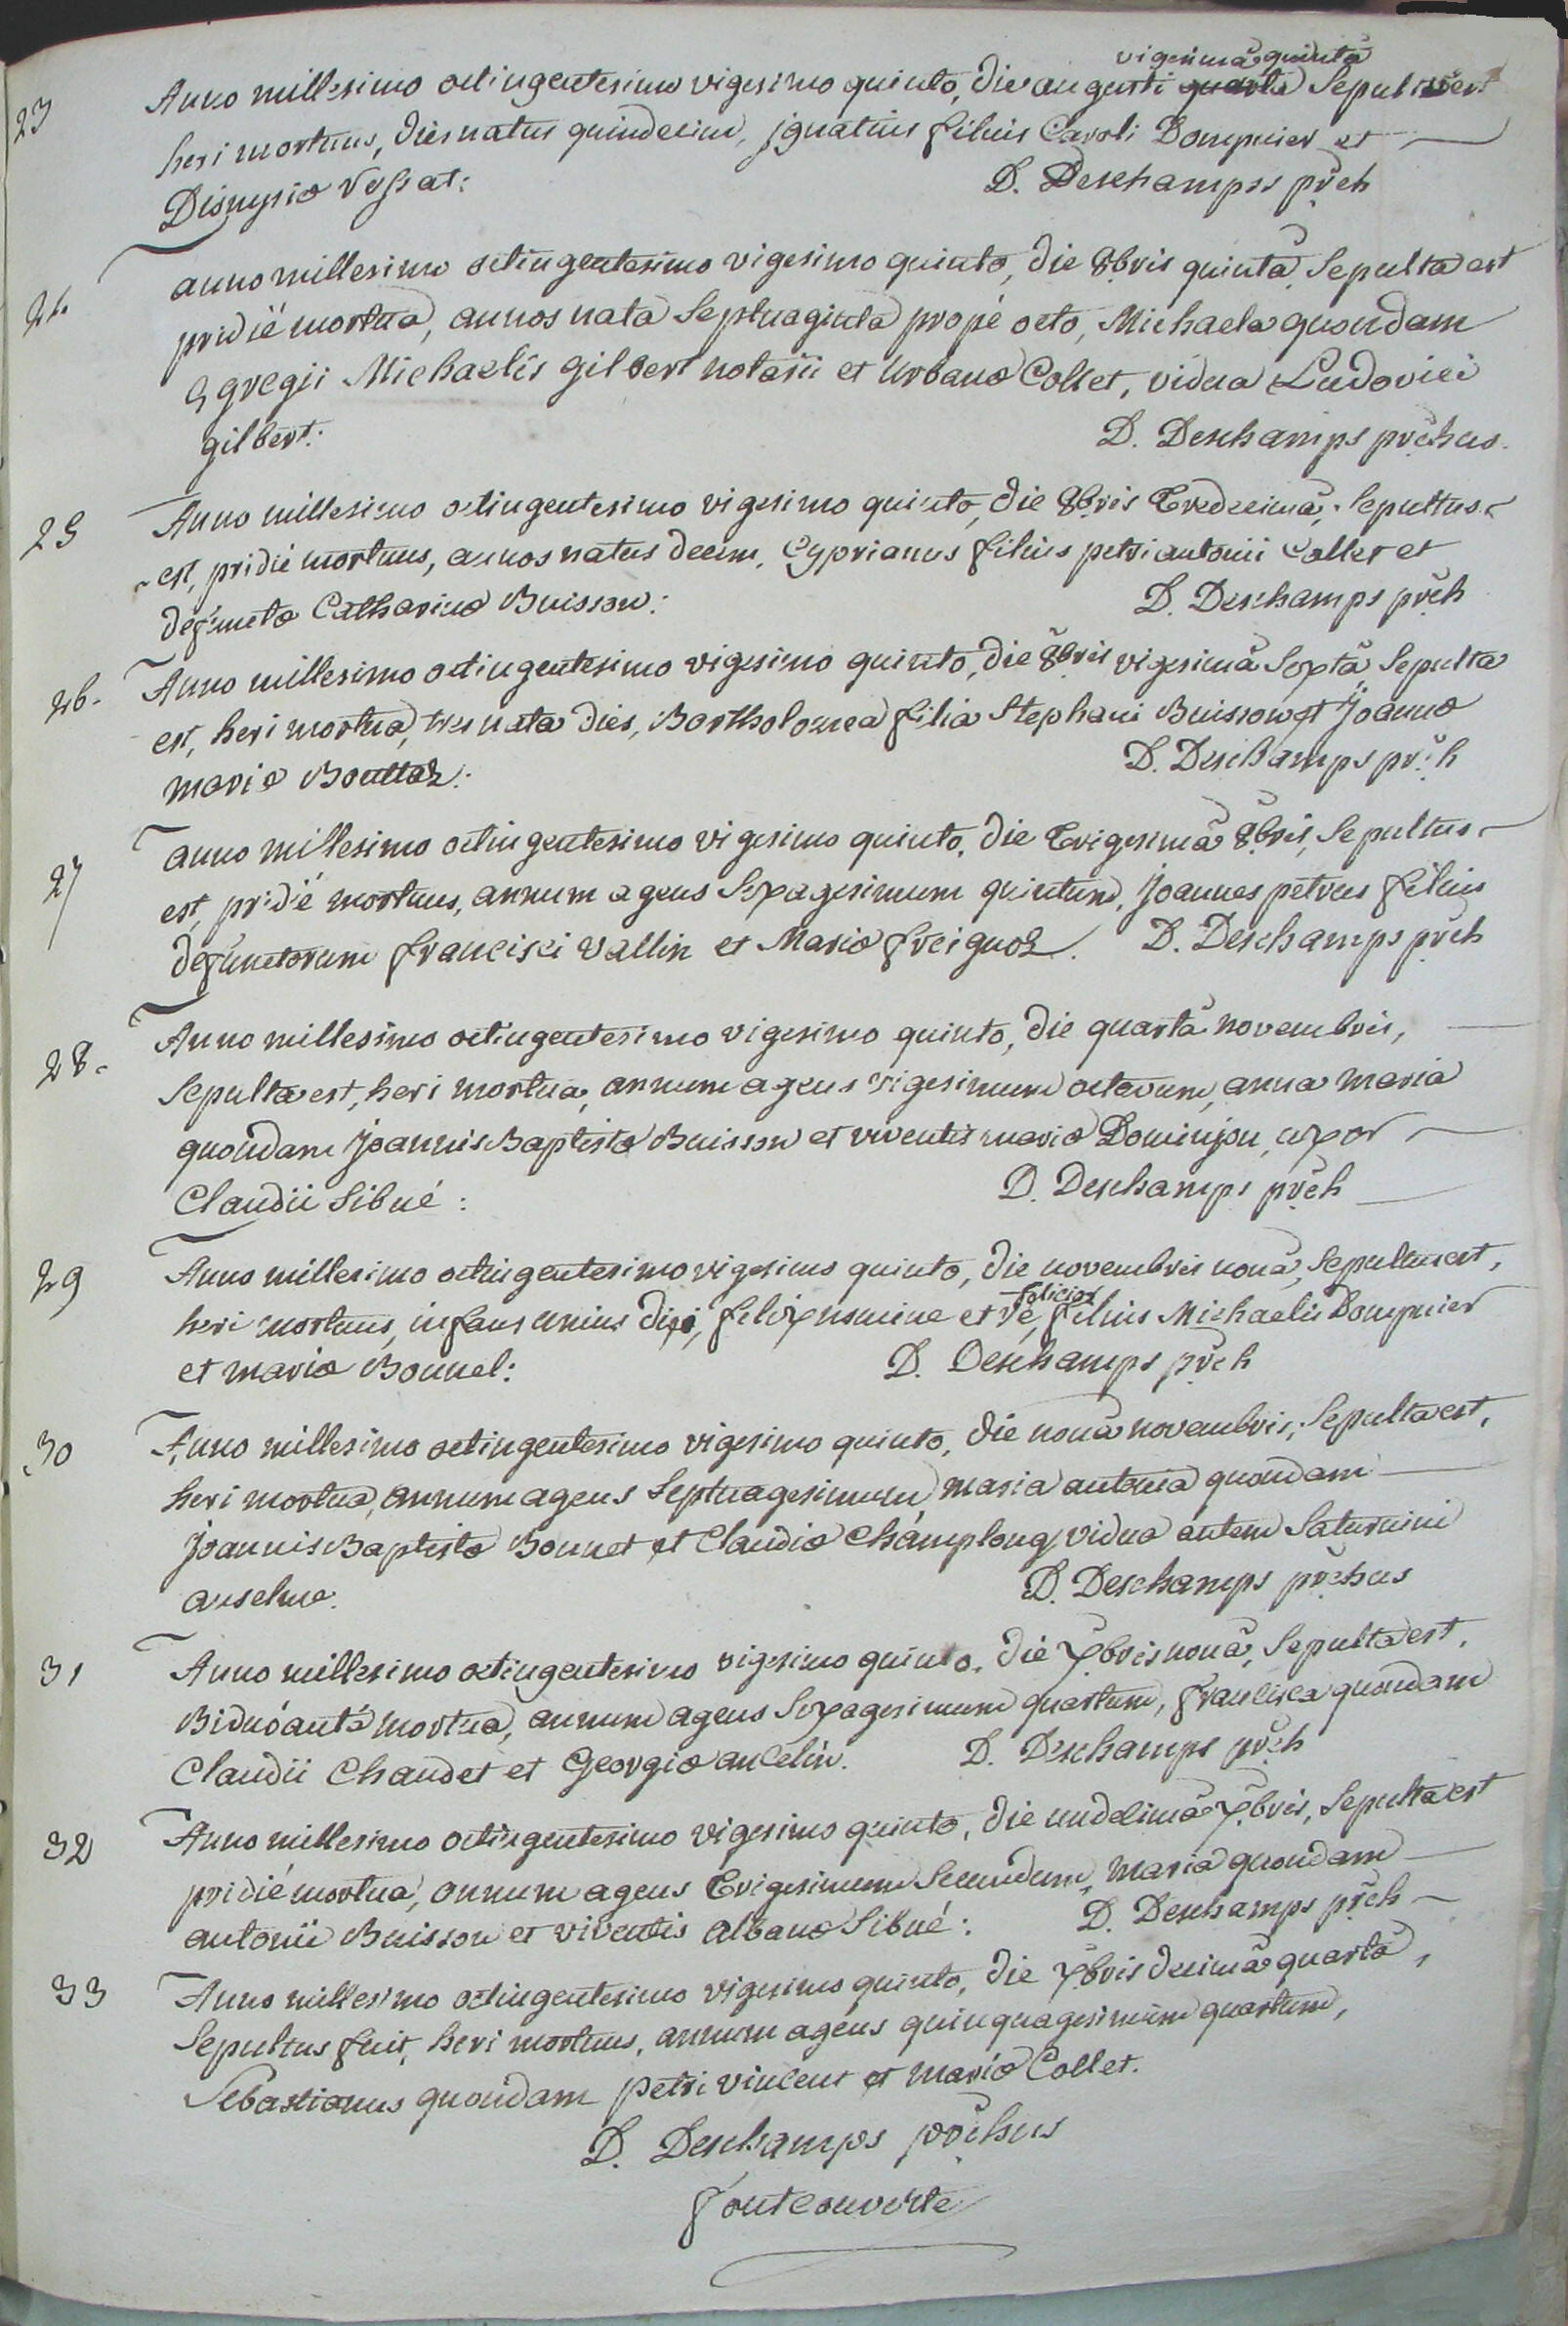 vigesimâ quintâ
23 Anno millesimo octingentesimo vigesimo quinto, die augusti quarta Sepultus est
heri mortuus, dies natus quindecim, jgnatius filius Caroli Dompnier et
Dionysiæ Vessat: D. Deschampss pr̃ch
24 anno millesimo octingentesimo vigesimo quinto, die 8bris quintâ, Sepulta est
pridiè mortua, annos nata Septuaginta propè octo, Michaela quondam
Egregii Michaelis gilbert notarii et Urbanæ Collet, vidua Ludovici
gilbert: D. Deschamps pr̃chus.
25 Anno millesimo octingentesimo vigesimo quinto, die 8bris Tredecimâ, Sepultus
est, pridiè mortuus, annos natus decem, Cyprianus filius petri antonii Collet et
defunctæ Catharinæ Buisson: D. Deschamps pr̃ch
26. Anno millesimo octingentesimo vigesimo quinto, die 8bris vigesimâ Sextâ, Sepulta
est, heri mortua, tres nata dies, Bartholomea filia Stephani Buisson et Joannæ
mariæ Bouttaz: D. Deschamps pr̃ch
27 anno millesimo octingentesimo vigesimo quinto, die Trigesimâ 8bris, Sepultus
est, pridiè mortuus, annum agens Sexagesimum quintum, Joannes petrus filius
defunctorum francisci Vallin et Mariæ freignoz. D. Deschamps pr̃ch
28. Anno millesimo octingentesimo vigesimo quinto, die quartâ novembris,
Sepulta est, heri mortua, annum agens vigesimum octavum, anna maria
quondam Joannis Baptistæ Buisson et viventis mariæ Dominjon, uxor
Claudii Sibué: D. Deschamps pr̃ch
29 Anno millesimo octingentesimo vigesimo quinto, die novembris nonâ, Sepultus est,
felicior
heri mortuus, infans unius diei, felix nomine et re, filius Michaelis Dompnier
et mariæ Bonnel: D. Deschamps pr̃ch
30 Anno millesimo octingentesimo vigesimo quinto, die nonâ novembris, Sepulta est,
heri mortua, annum agens Septuagesimum, maria antonia quondam
Joannis Baptistæ Bonnet et Claudiæ Champlong, vidua autem Saturnini
anselme. D. Deschamps pr̃chus
31 Anno millesimo octingentesimo vigesimo quinto, die Xbris nonâ, Sepulta est,
Biduò antè mortua, annum agens Sexagesimum quartum, francisca quondam
Claudii Chaudet et Georgiæ ancelin. D. Deschamps pr̃ch
32 Anno millesimo octingentesimo vigesimo quinto, die undecimâ Xbris, Sepulta est
pridiè mortua, annum agens Trigesimum Secundum, maria quondam
antonii Buisson et viventis albanæ Sibué: D. Deschamps pr̃ch
33 Anno millesimo octingentesimo vigesimo quinto, die Xbris decimâ quartâ,
Sepultus fuit, heri mortuus, annum agens quinquagesimum quartum,
Sebastianus quondam petri vincent et mariæ Collet.
D. Deschamps pr̃chus
fontcouverte